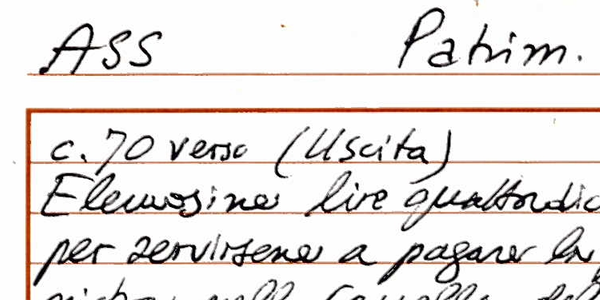 ASS Patrim.
c. 70 verso (Uscita)
Elemosine lire quattordic
per servirsene a pagare la
nella Cappella del